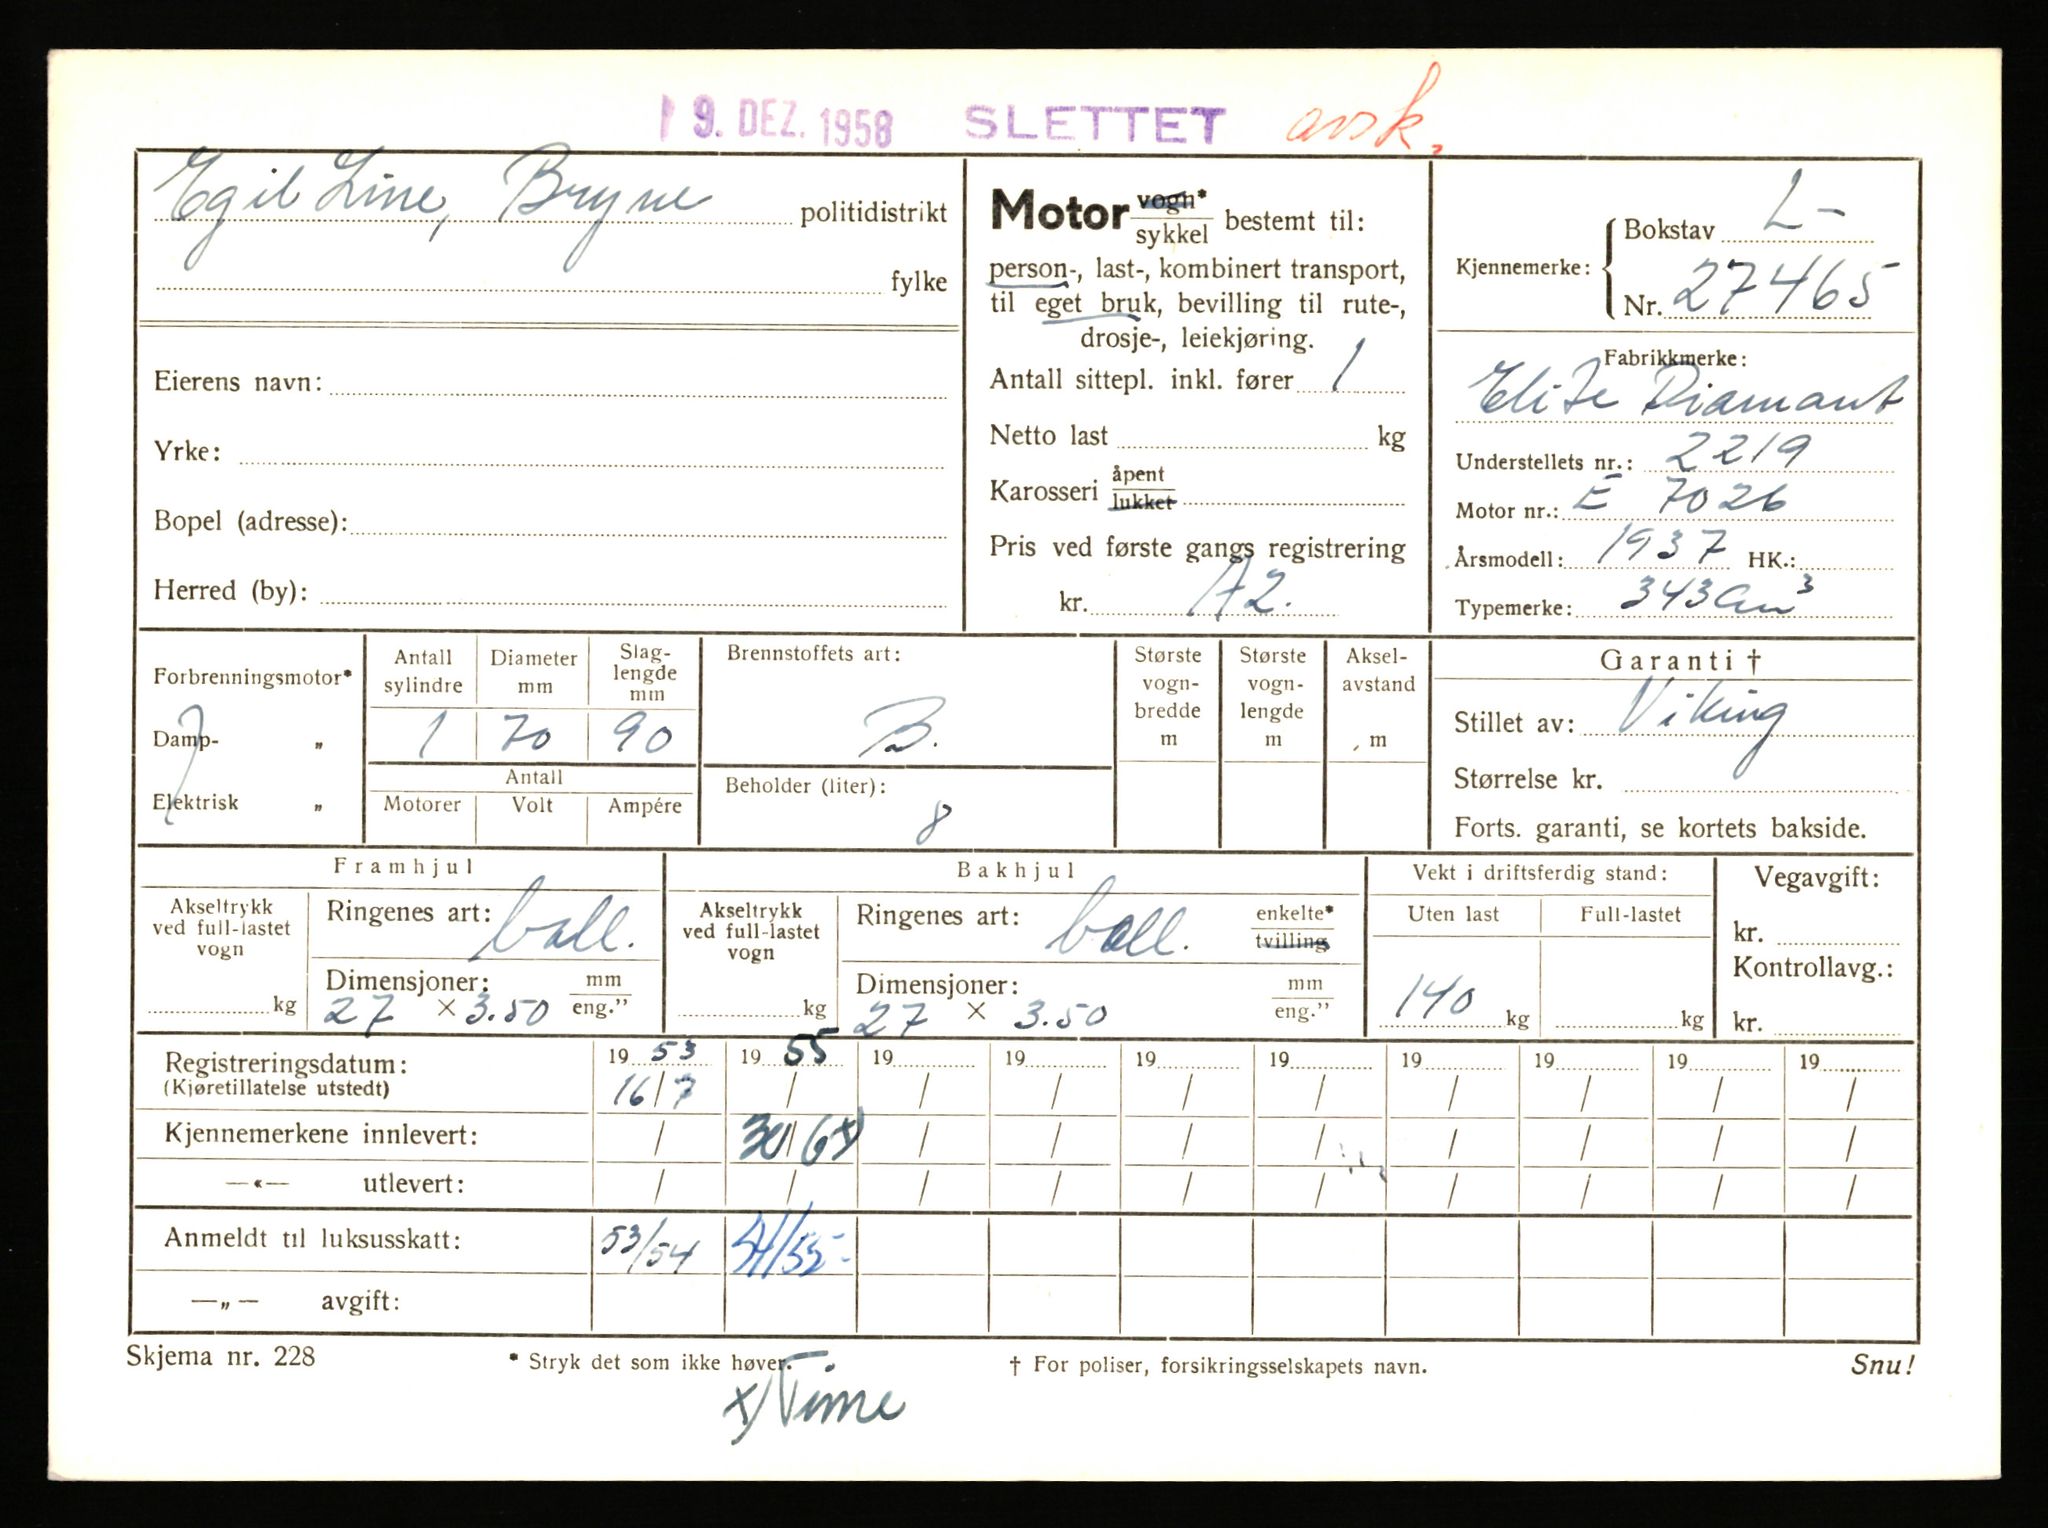 19. DEZ. 1958 SLETTET avsk.
Egil Line, Bryne politidistrikt
fylke
Eierens navn:
Yrke:
Bopel (adresse):
Herred (by):
Motor vogn* / sykkel bestemt til:
person-, last-, kombinert transport,
til eget bruk, bevilling til rute-,
drosje-, leiekjøring.
Antall sittepl. inkl. fører 1
Netto last kg
Karosseri åpent / lukket
Pris ved første gangs registrering
kr. A2.
Kjennemerke: Bokstav L-
Nr. 27465
Fabrikkmerke:
Elite Diamant
Understellets nr.: 2219
Motor nr.: E 7026
Årsmodell: 1937 HK.:
Typemerke: 343 cm³
Forbrenningsmotor*
Damp- „
Elektrisk „
Antall sylindre Diameter mm Slaglengde mm
1 70 90
Antall
Motorer Volt Ampére
Brennstoffets art:
B.
Beholder (liter):
8
Største vognbredde m
Største vognlengde m
Akselavstand m
Garanti †
Stillet av: Viking
Størrelse kr.
Forts. garanti, se kortets bakside.
Framhjul
Akseltrykk ved full-lastet vogn kg
Ringenes art: ball.
Dimensjoner: mm / eng."
27 × 3.50
Bakhjul
Akseltrykk ved full-lastet vogn kg
Ringenes art: ball. enkelte* / tvilling
Dimensjoner: mm / eng."
27 × 3.50
Vekt i driftsferdig stand:
Uten last Full-lastet
140 kg kg
Vegavgift:
kr.
Kontrollavg.:
kr.
Registreringsdatum: 19 53 19 55 19 19 19 19 19 19 19 19
(Kjøretillatelse utstedt) 16/7 / / / / / / / / /
Kjennemerkene innlevert: / 30/6 x) / / / / / / / /
—«— utlevert: / / / / / / / / / /
Anmeldt til luksusskatt: 53/54 54/55-
—„— avgift:
Skjema nr. 228 * Stryk det som ikke høver. † For poliser, forsikringsselskapets navn. Snu!
x) Time